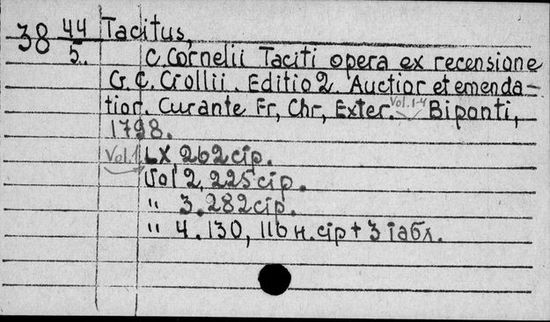 38 44/5. Tacitus,
C. Cornelii Taciti opera ex recensione
G. C. Crollii. Editio 2. Auctior et emenda-
tior. Curante Fr, Chr, Exter. Vol. 1-4 Biponti,
1798.
Vol. 1. LX, 262 cтр.
Vol 2, 225 cтр.
" 3. 282 cтр.
" 4. 130, 116 н. cтр + 3 табл.